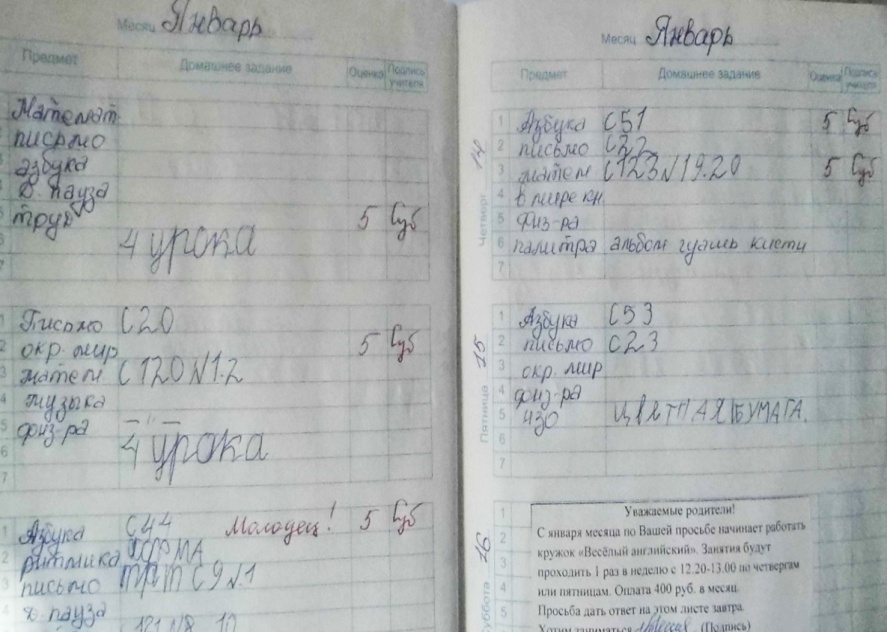 Месяц Январь
Предмет Домашнее задание Оценка Подпись учителя
Математ.
2 письмо
3 азбука
4 д. пауза
5 труд 5
6 4 урока
7
1 Письмо С20
2 окр. мир 5
3 матем С 120 №1.2
4 музыка
5 физ-ра – " –
6 4 урока
7
1 Азбука С44 Молодец! 5
2 ритмика ФОРМА
3 письмо ПРТ С9 №1
4 д. пауза
121 №8 10
Месяц Январь
Предмет Домашнее задание Оценка Подпись учителя
Четверг 14
1 Азбука С51 5
2 письмо С22
3 матем С123 №19.20 5
4 в мире кн.
5 Физ-ра
6 палитра альбом гуашь кисти
7
Пятница 15
1 Азбука С53
2 письмо С23
3 окр. мир
4 физ-ра
5 ИЗО ЦВЕТНАЯ БУМАГА.
6
7
Суббота 16
1 Уважаемые родители!
2 С января месяца по Вашей просьбе начинает работать
кружок «Весёлый английский». Занятия будут
3 проходить 1 раз в неделю с 12.20-13.00 по четвергам
4 или пятницам. Оплата 400 руб. в месяц.
5 Просьба дать ответ на этом листе завтра.
Хотим заниматься (Подпись)